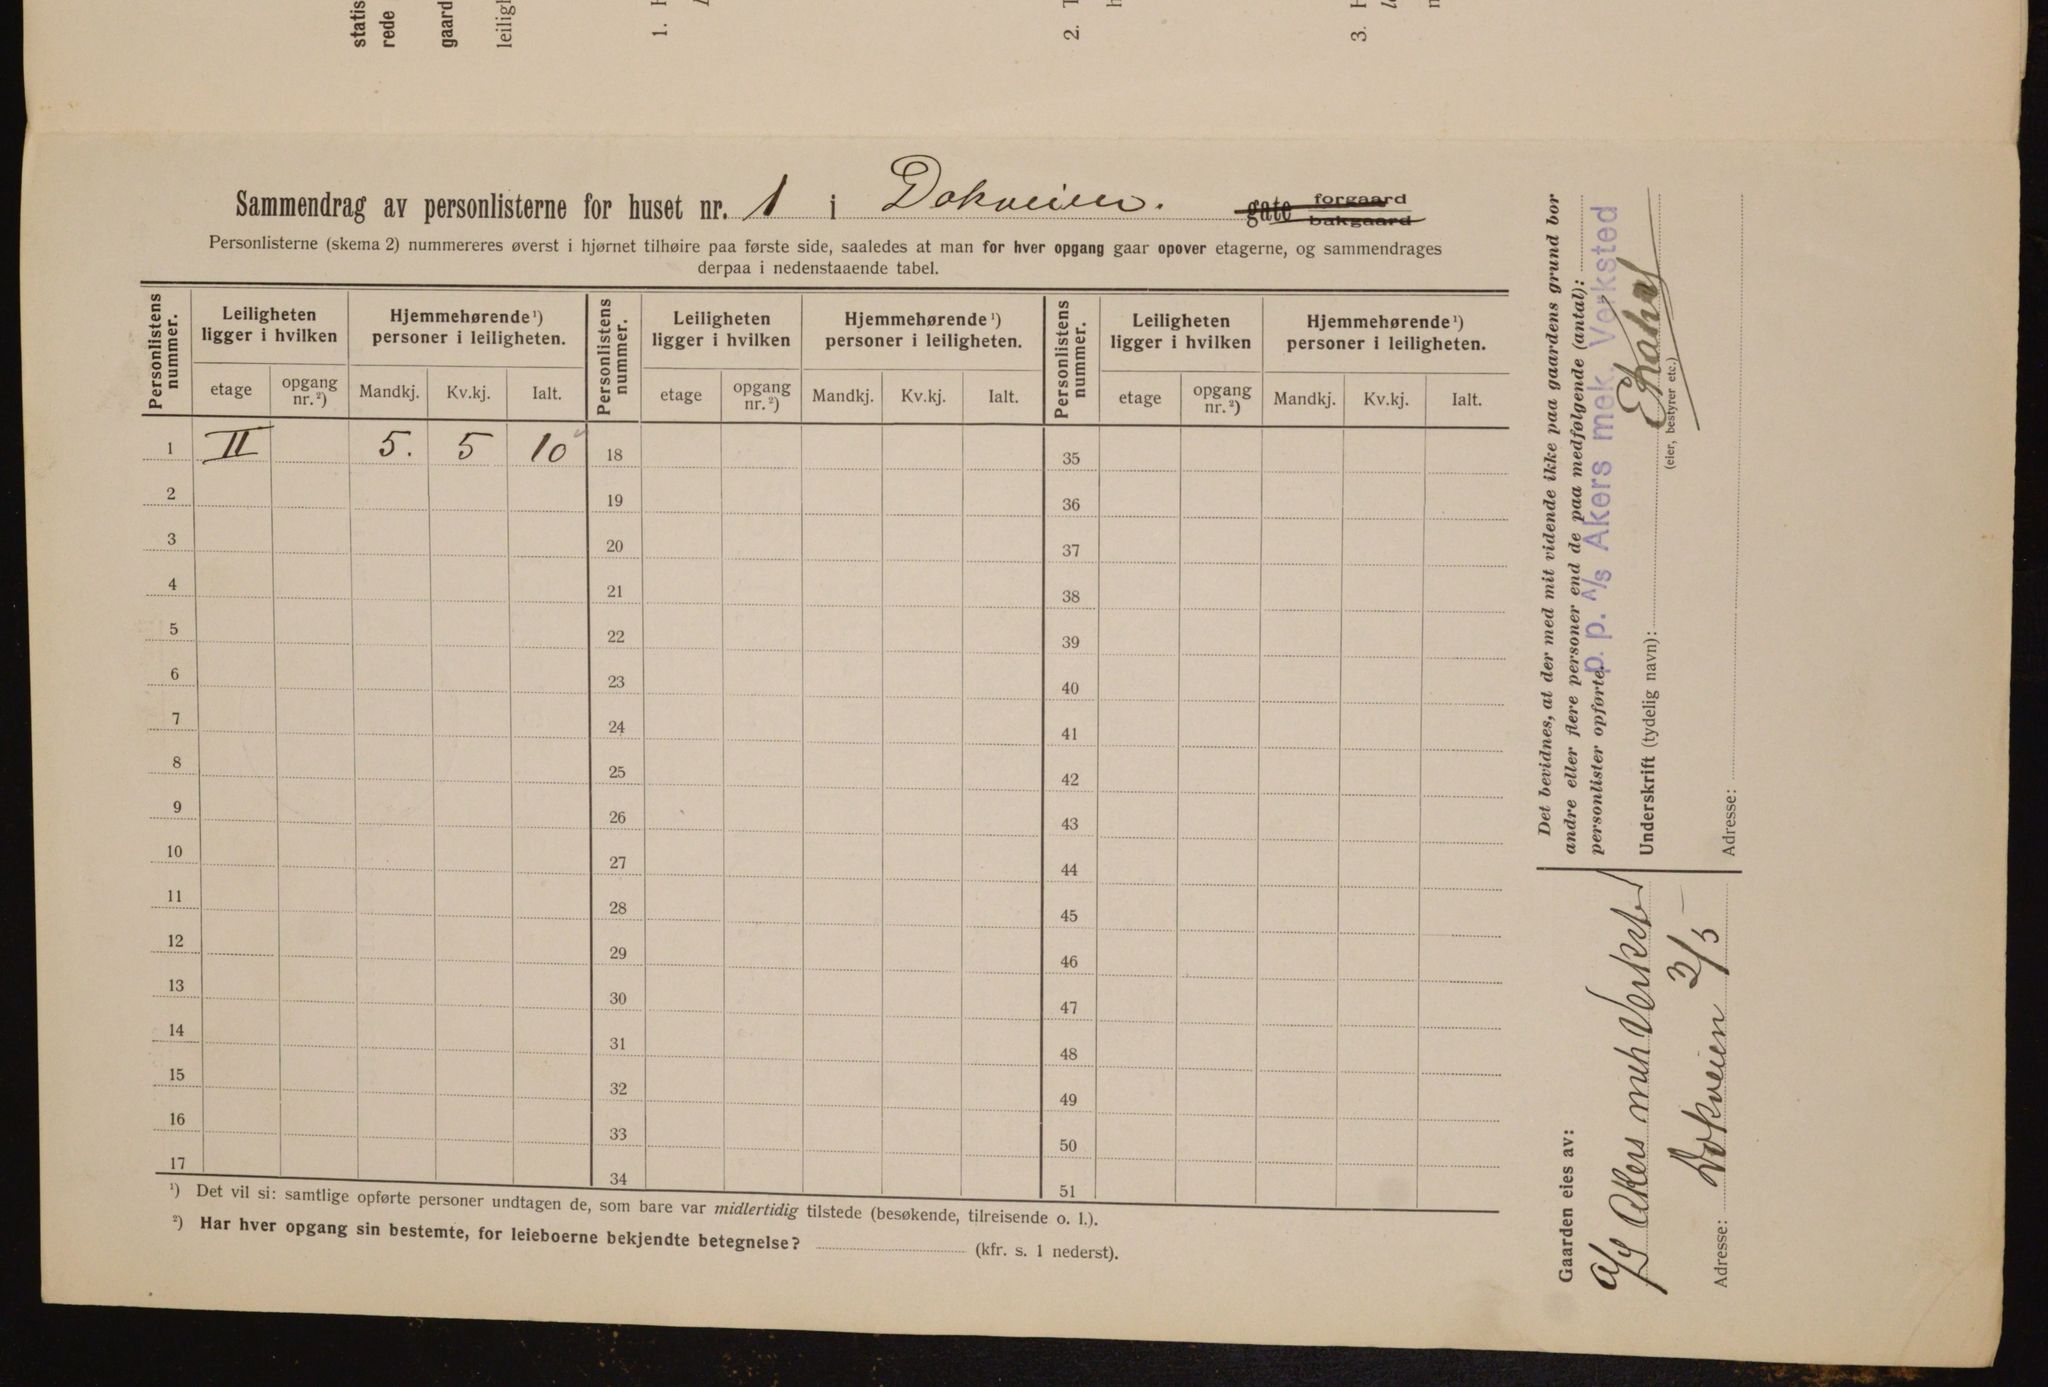 statis
rede
gaard
leiligh
1. H
2. T
h
3. H
Sammendrag av personlisterne for huset nr. 1 i Dokveien. gate forgaard bakgaard
Personlisterne (skema 2) nummereres øverst i hjørnet tilhøire paa første side, saaledes at man for hver opgang gaar opover etagerne, og sammendrages
derpaa i nedenstaaende tabel.
Personlistens nummer. Leiligheten ligger i hvilken Hjemmehørende¹) personer i leiligheten. Personlistens nummer. Leiligheten ligger i hvilken Hjemmehørende¹) personer i leiligheten. Personlistens nummer. Leiligheten ligger i hvilken Hjemmehørende¹) personer i leiligheten.
etage opgang nr.²) Mandkj. Kv.kj. Ialt. etage opgang nr.²) Mandkj. Kv.kj. Ialt. etage opgang nr.²) Mandkj. Kv.kj. Ialt.
1 II 5. 5 10 18 35
2 19 36
3 20 37
4 21 38
5 22 39
6 23 40
7 24 41
8 25 42
9 26 43
10 27 44
11 28 45
12 29 46
13 30 47
14 31 48
15 32 49
16 33 50
17 34 51
¹) Det vil si: samtlige opførte personer undtagen de, som bare var midlertidig tilstede (besøkende, tilreisende o. l.).
²) Har hver opgang sin bestemte, for leieboerne bekjendte betegnelse? (kfr. s. 1 nederst).
Det bevidnes, at der med mit vidende ikke paa gaardens grund bor
andre eller flere personer end de paa medfølgende (antal):
personlister opførte.
p. p. A/S Akers mek. Verksted
Underskrift (tydelig navn):
(eier, bestyrer etc.)
Adresse:
Gaarden eies av:
A/S Akers mek Verksted
Adresse: Dokveien 3/5